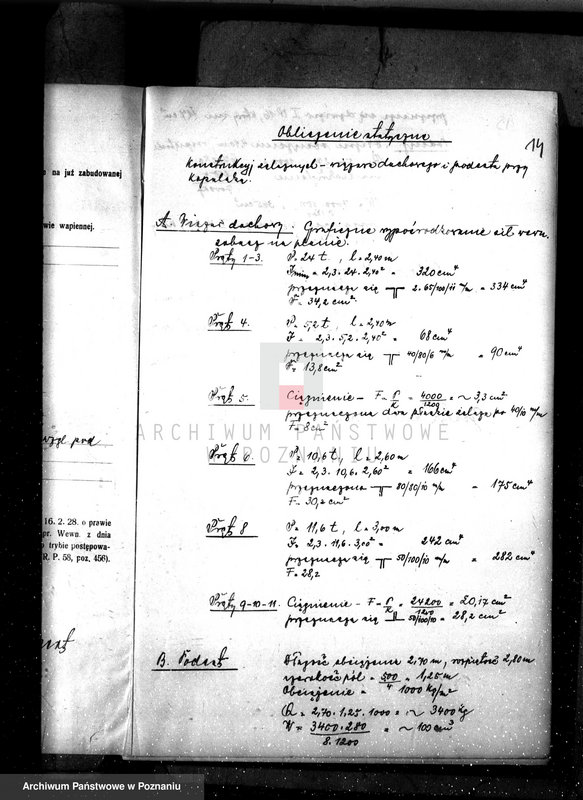 14
Obliczenie statyczne
konstrukcyj żelaznych – więzara dachowego i podestu przy
kopalni.
o na już zabudowanej
wie wapiennej.
A. Więzar dachowy. Graficzne wypośrodkowanie sił wewn.
zobacz na planie.
Pręty 1-3. P = 24 t, l = 2,40 m
Jmin = 2,3 . 24 . 2,40² = 320 cm⁴
przyjmuje się 2. 65/100/11 m/m = 334 cm⁴
F = 34,2 cm²
Pręt 4. P = 5,2 t, l = 2,40 m
J = 2,3 . 5,2 . 2,40² = 68 cm⁴
przyjmuje się 40/80/6 m/m = 90 cm⁴
F = 13,8 cm²
Pręt 5. Ciągnienie – F = P/k = 4000/1200 = ~ 3,3 cm²
przyjmuje dwa płaskie żelaza po 40/10 m/m
F = 8 cm²
ARCHIWUM PAŃSTWOWE
W POZNANIU
wzgl. pod
Pręt 6. P = 10,6 t, l = 2,60 m
J = 2,3 . 10,6 . 2,60² = 166 cm⁴
przyjmuje 80/80/10 m/m = 175 cm⁴
F = 30,2 cm²
16. 2. 28. o prawie
pr. Wewn. z dnia
o trybie postępowa-
R. P. 58, poz. 456).
Pręt 8 P = 11,6 t, l = 3,00 m
J = 2,3 . 11,6 . 3,00² = 242 cm⁴
przyjmuje się 50/100/10 m/m = 282 cm⁴
F = 28,2
Pręty 9-10-11. Ciągnienie – F = P/k = 24200/1200 = 20,17 cm²
przyjmuje się 50/100/10 = 28,2 cm²
B. Podest Długość obciążenia 2,70 m, rozpiętość 2,80 m
szerokość pól = 500/4 = 1,25 m
Obciążenie = 1000 kg/m²
Q = 2,70 . 1,25 . 1000 = ~ 3400 kg
W = 3400 . 280 / 8 . 1200 = ~ 100 cm³
Archiwum Państwowe w Poznaniu